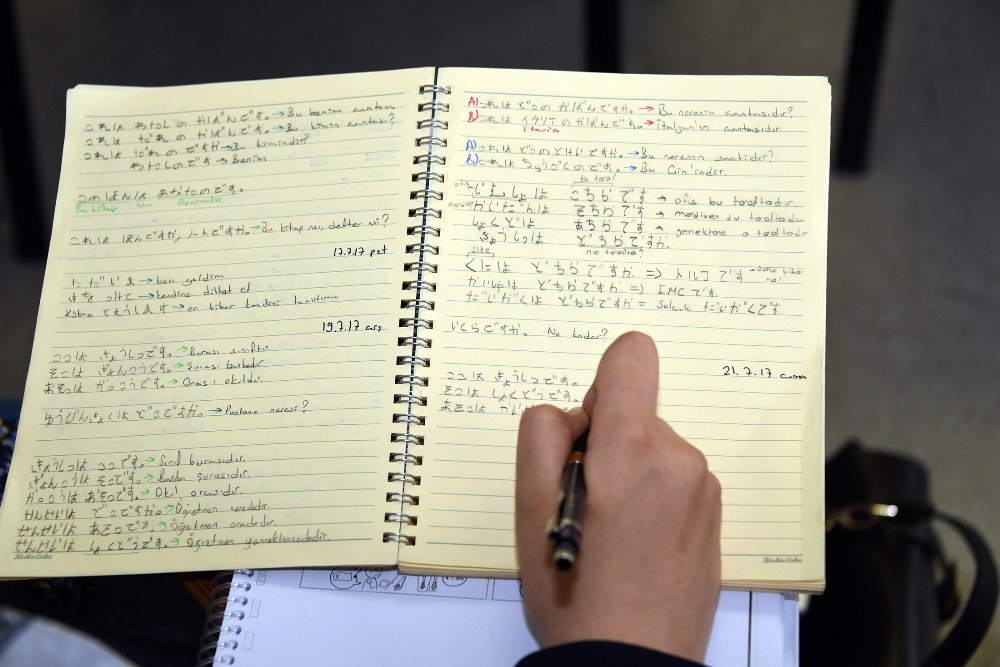 これは わたしの かばんです。→ Bu benim çantam.
これは だれの かばんですか。→ Bu kimin çantası?
これは だれの ですか → Bu kimindir?
わたしのです → Benim
このほんは あなたのです。
Bu kitap
これは ほんですか, ノートですか。→ Bu kitap mı, defter mi?
17.7.17 pzt
ただいま → ben geldim
きをつけて → kendine dikkat et
ともうします → en kibar kendini tanıtma
19.7.17 çarş
ここは きょうしつです。→ Burası sınıftır
そこは ぎんこうです。→ Şurası bankadır.
あそこは がっこうです。→ Orası okuldur.
ゆうびんきょくは どこですか。→ Postane neresi?
きょうしつは ここです。→ Sınıf burasıdır.
ぎんこうは そこです。→ Banka şurasıdır.
がっこうは あそこです。→ Okul orasıdır.
せんせいは どこですか。→ Öğretmen nerededir.
せんせいは あそこです。→ Öğretmen oradadır.
せんせいは しょくどうです。→ Öğretmen yemekhanededir.
A) これは どこの かばんですか。→ Bu nerenin çantasıdır?
B) これは イタリアのかばんです。→ İtalya'nın çantasıdır.
itaria
A) これは どこの とけいですか。→ Bu nerenin saatidir?
B) これは ちゅうごくのです。→ Bu Çin'indir.
bu taraf
ofis じむしょは こちらです → ofis bu taraftadır.
かいだんは そちらです → merdiven şu taraftadır
しょくどうは あちらです → yemekhane o taraftadır
きょうしつは どちらですか.
ne tarafta
ülke
くには どちらですか => トルコです
かいしゃは どちらですか => IMCです.
だいがくは どちらですか = Selçuk だいがくです
いくらですか。 Ne kadar?
21.7.17 cuma
ここは きょうしつです。
そこは しょくどうです。
あそこは